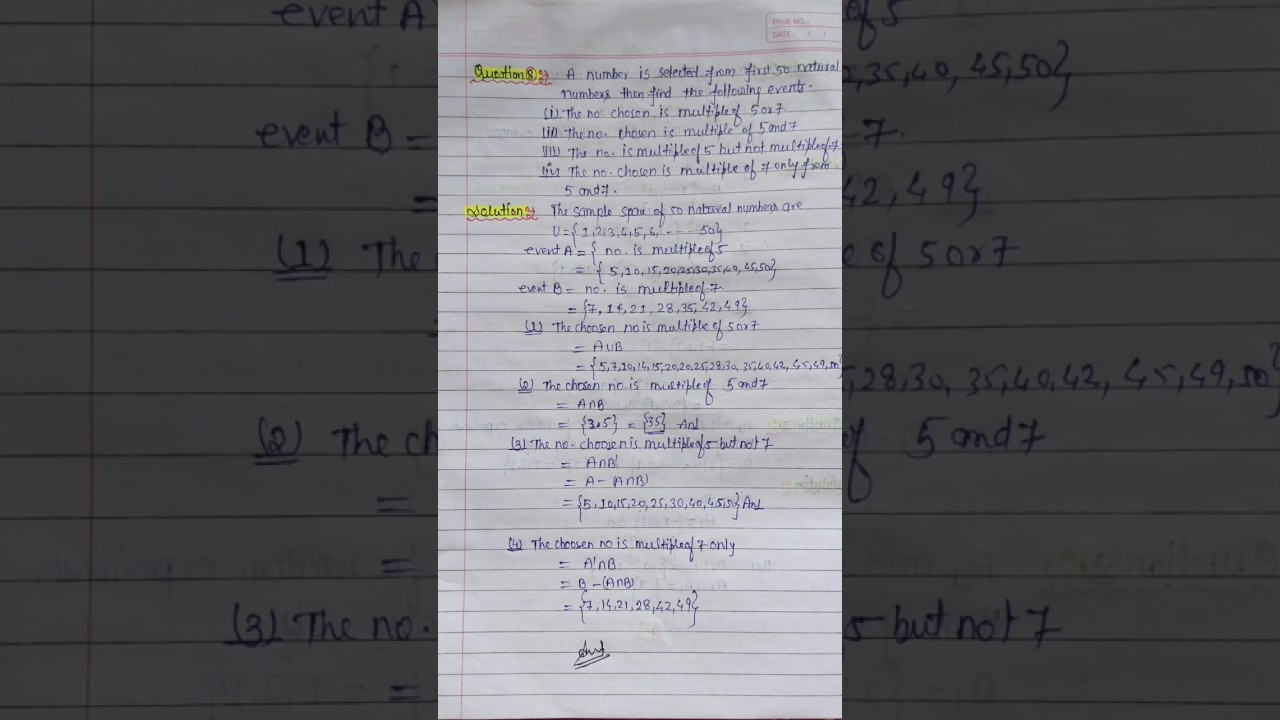 PAGE NO.:
DATE: / /
Question 8:
A number is selected from first 50 natural
numbers then find the following events.
(i) The no. chosen is multiple of 5 or 7
(ii) The no. chosen is multiple of 5 and 7
(iii) The no. is multiple of 5 but not multiple of 7
(iv) The no. chosen is multiple of 7 only from
5 and 7.
Solution: The sample space of 50 natural numbers are
U = { 1, 2, 3, 4, 5, 6, - - - - 50}
event A = { no. is multiple of 5
= { 5, 10, 15, 20, 25, 30, 35, 40, 45, 50}
event B - no. is multiple of 7
= {7, 14, 21, 28, 35, 42, 49}
(1) The choosen no is multiple of 5 or 7
= A∪B
= {5, 7, 10, 14, 15, 20, 20, 25, 28, 30, 35, 40, 42, 45, 49, 50}
(2) The chosen no. is multiple of 5 and 7
= A∩B
= {3.5} = {35} Ans
(3) The no. choosen is multiple of 5 but not 7
= A∩B'
= A - (A∩B)
= {5, 10, 15, 20, 25, 30, 40, 45, 50} Ans
(4) The choosen no is multiple of 7 only
= A'∩B
= B - (A∩B)
= {7, 14, 21, 28, 42, 49}
Ans